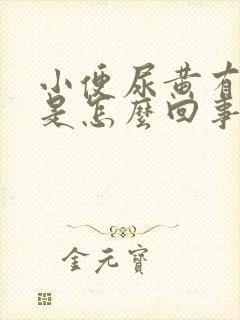 小便尿黄有
是怎麼回事
金元寶